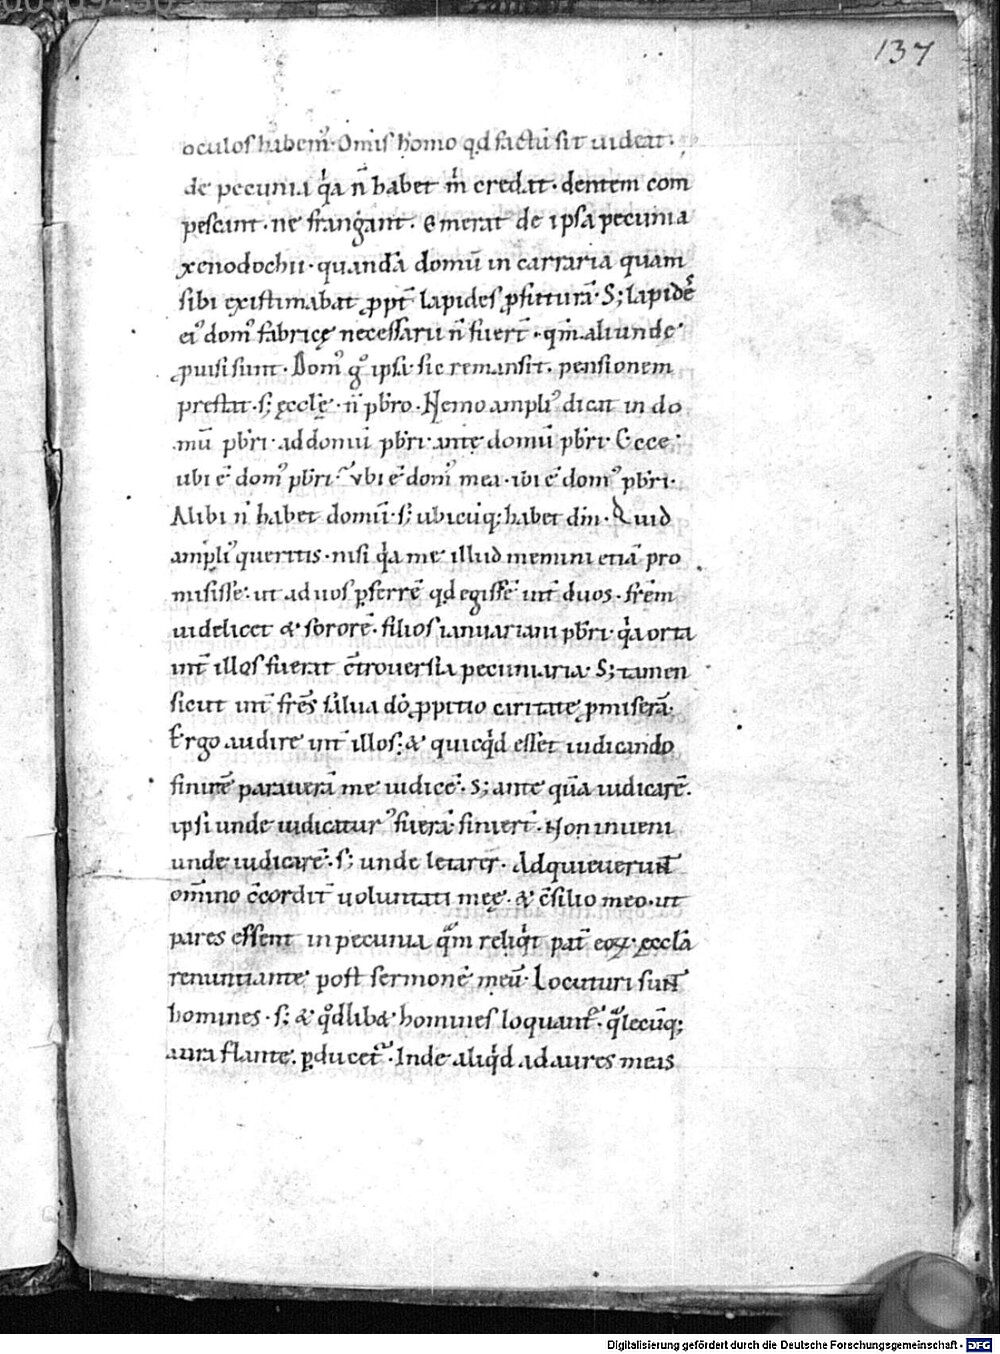 137
oculos habem᷒. Omīs homo qd factū sit uideat.
de pecunia q̇a n̄ habet m̄ credat. dentem com
pescant. ne frangant. Emerat de ipsa pecunia
xenodochii. quandā domū in carraria quam
sibi existimabat ꝓpt̄ lapides ꝓfuturā. S; lapidē᷒
ei᷒ dom᷒ fabricę necessarii n̄ fuer̄t. qm̄ aliunde
ꝓuisi sunt. Dom᷒ g̊ ipsa sic remansit. pensionem
prestat. s; ęcclę. n̄ pb̄ro. Nemo ampli᷒ dicat in do
mū pb̄ri. ad domū pb̄ri. ante domū pb̄ri. Ecce
ubi ē dom᷒ pb̄ri. ubi ē dom᷒ mea. ibi ē dom᷒ pb̄ri.
Alibi n̄ habet domū. s; ubicūq; habet dm̄. Quid
ampli᷒ queritis. nisi q̇a me illud memini etiā pro
misisse. ut ad uos ꝑferrē qd egissē int̄ duos. fr̄em
uidelicet & sororē. filios ianuariani pb̄ri. q̇a orta
int̄ illos fuerat c̄trouersia pecuniaria. S; tamen
sicut int̄ fr̄es salua dō ꝓpitio caritate ꝓmiserā.
Ergo audire int̄ illos. & quicq̇d esset iudicando
finirē paraueā me iudicē. S; ante quā iudicarē.
ipsi unde iudicatur᷒ fuerā finier̄t. Non inueni
unde iudicarē. s; unde letarer. Adquieuerunt
om̄ino c̄cordit̄ uoluntati meę. & c̄silio meo. ut
pares essent in pecunia quā reliq̇t pat̄ eoꝝ. ęccla
renuntiante post sermonē meū. Locuturi sunt
homines. s; & qdlib& homines loquant᷒. q̄lecūq;
aura flante. ꝑducet᷒. Inde aliq̇d ad aures meas
Digitalisierung gefördert durch die Deutsche Forschungsgemeinschaft - DFG